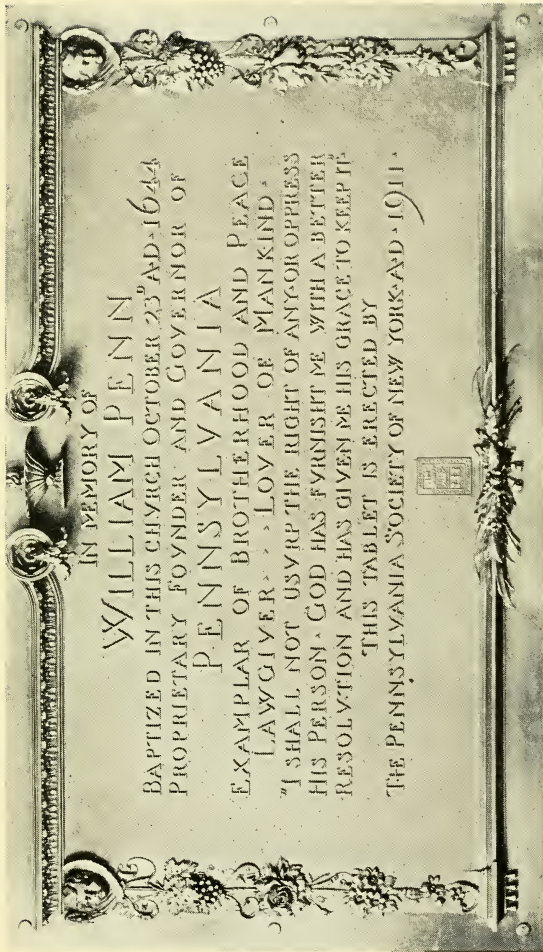 IN MEMORY OF
WILLIAM PENN
BAPTIZED IN THIS CHVRCH OCTOBER 23D A·D·1644
PROPRIETARY FOVNDER AND GOVERNOR OF
PENNSYLVANIA
EXAMPLAR OF BROTHERHOOD AND PEACE
LAWGIVER · · · LOVER OF MANKIND ·
"I SHALL NOT USVRP THE RIGHT OF ANY·OR OPPRESS
HIS PERSON · GOD HAS FVRNISHT ME WITH A BETTER
RESOLVTION AND HAS GIVEN ME HIS GRACE TO KEEP IT"
THIS TABLET IS ERECTED BY
THE PENNSYLVANIA SOCIETY OF NEW YORK·A·D·1911·